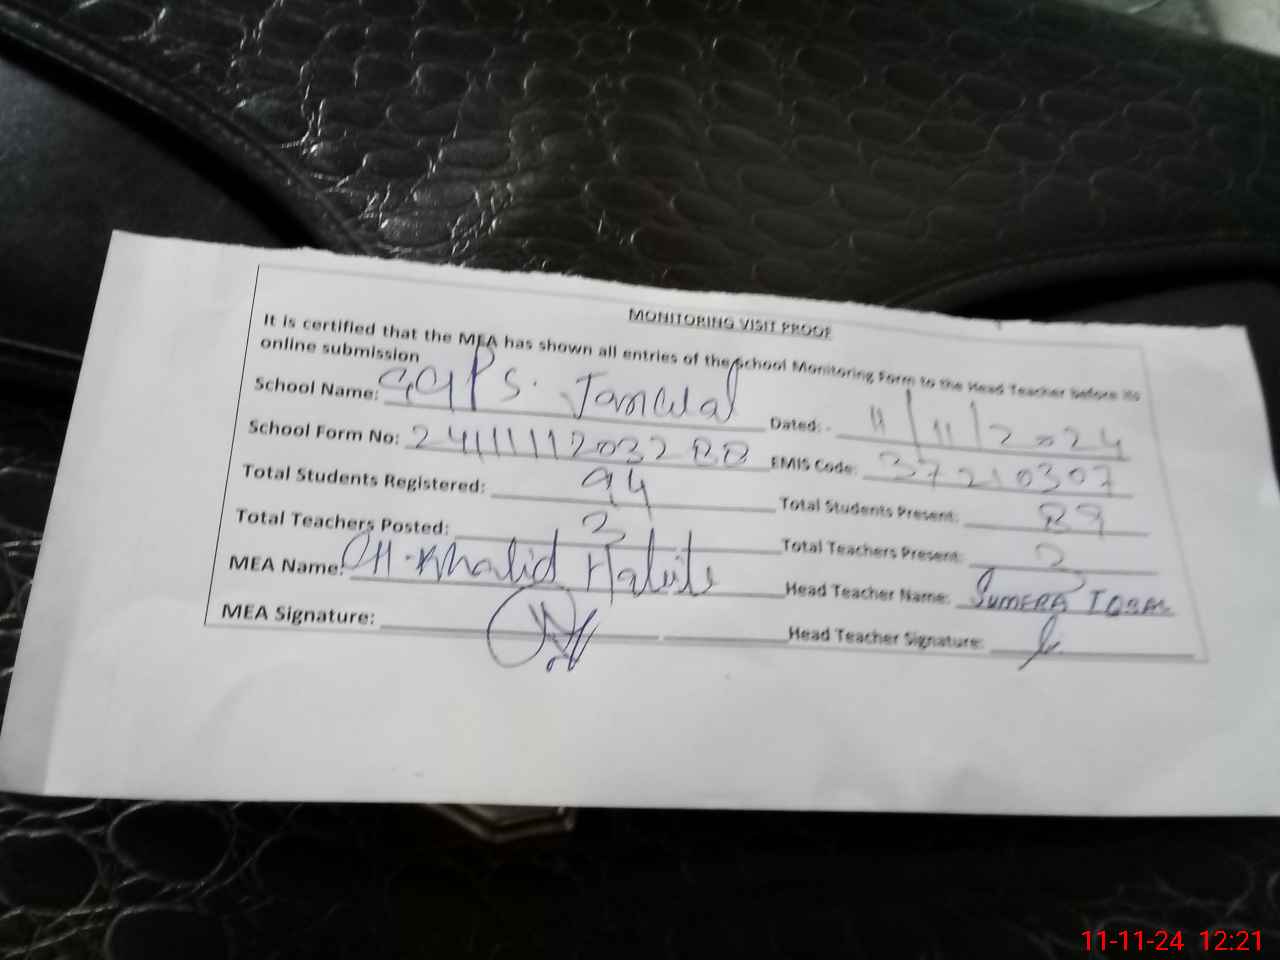 MONITORING VISIT PROOF
It is certified that the MEA has shown all entries of the School Monitoring Form to the Head Teacher before its
online submission
School Name: GGPS.
Dated: - 11/11/2024
School Form No: 24111112032 88
EMIS Code: 37210307
Total Students Registered: 94
Total Students Present: 89
Total Teachers Posted: 2
Total Teachers Present: 2
MEA Name: CH. Khalid
Head Teacher Name: SUMERA IQBAL
MEA Signature:
Head Teacher Signature:
11-11-24 12:21